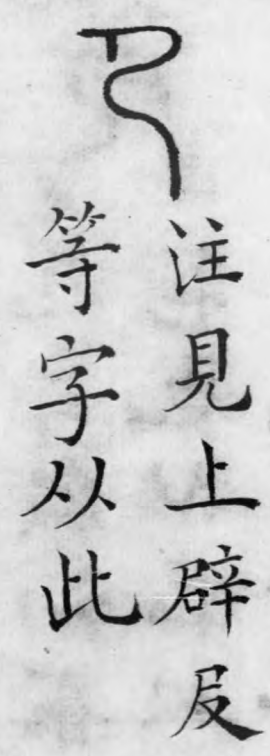 卪
注見上辟𠬝
等字从此